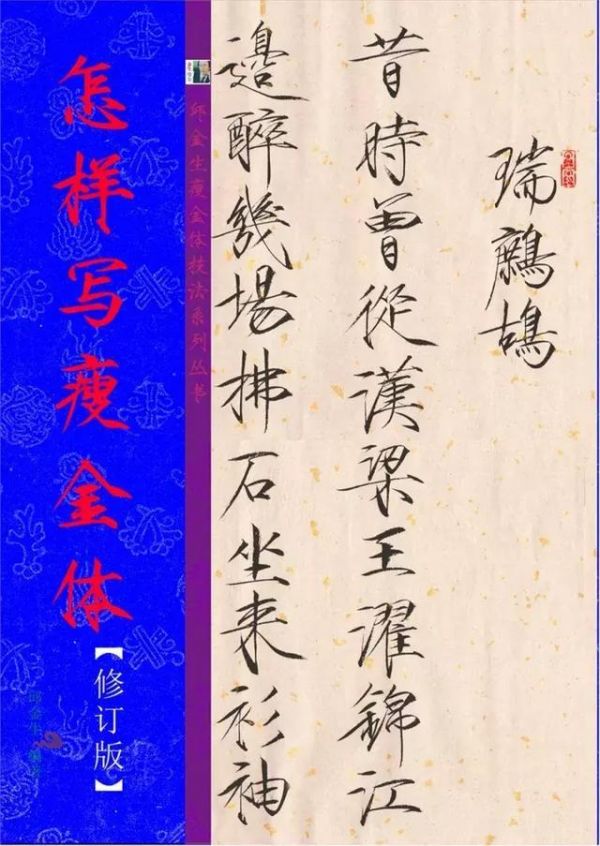 瑞鷓鴣
昔時曾從漢梁王濯錦江
邉醉幾場拂石坐來衫袖
邱金生瘦金体技法系列丛书
怎样写瘦金体
【修订版】
邱金生 编著